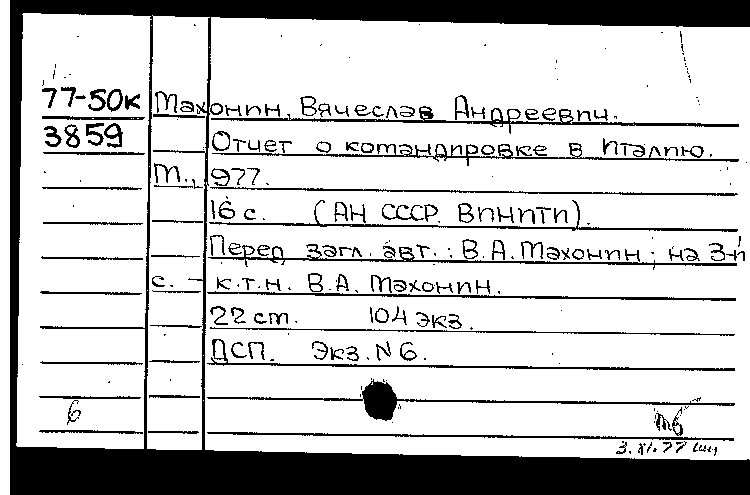 77-50к Махонин, Вячеслав Андреевич.
3859 Отчет о командировке в Италию.
М., 977.
16 с. (АН СССР. ВИНИТИ).
Перед загл. авт.: В.А. Махонин; на 3-й
с. – к.т.н. В.А. Махонин.
22 см. 104 экз.
ДСП. Экз. N 6.
6 мб
3.XI.77